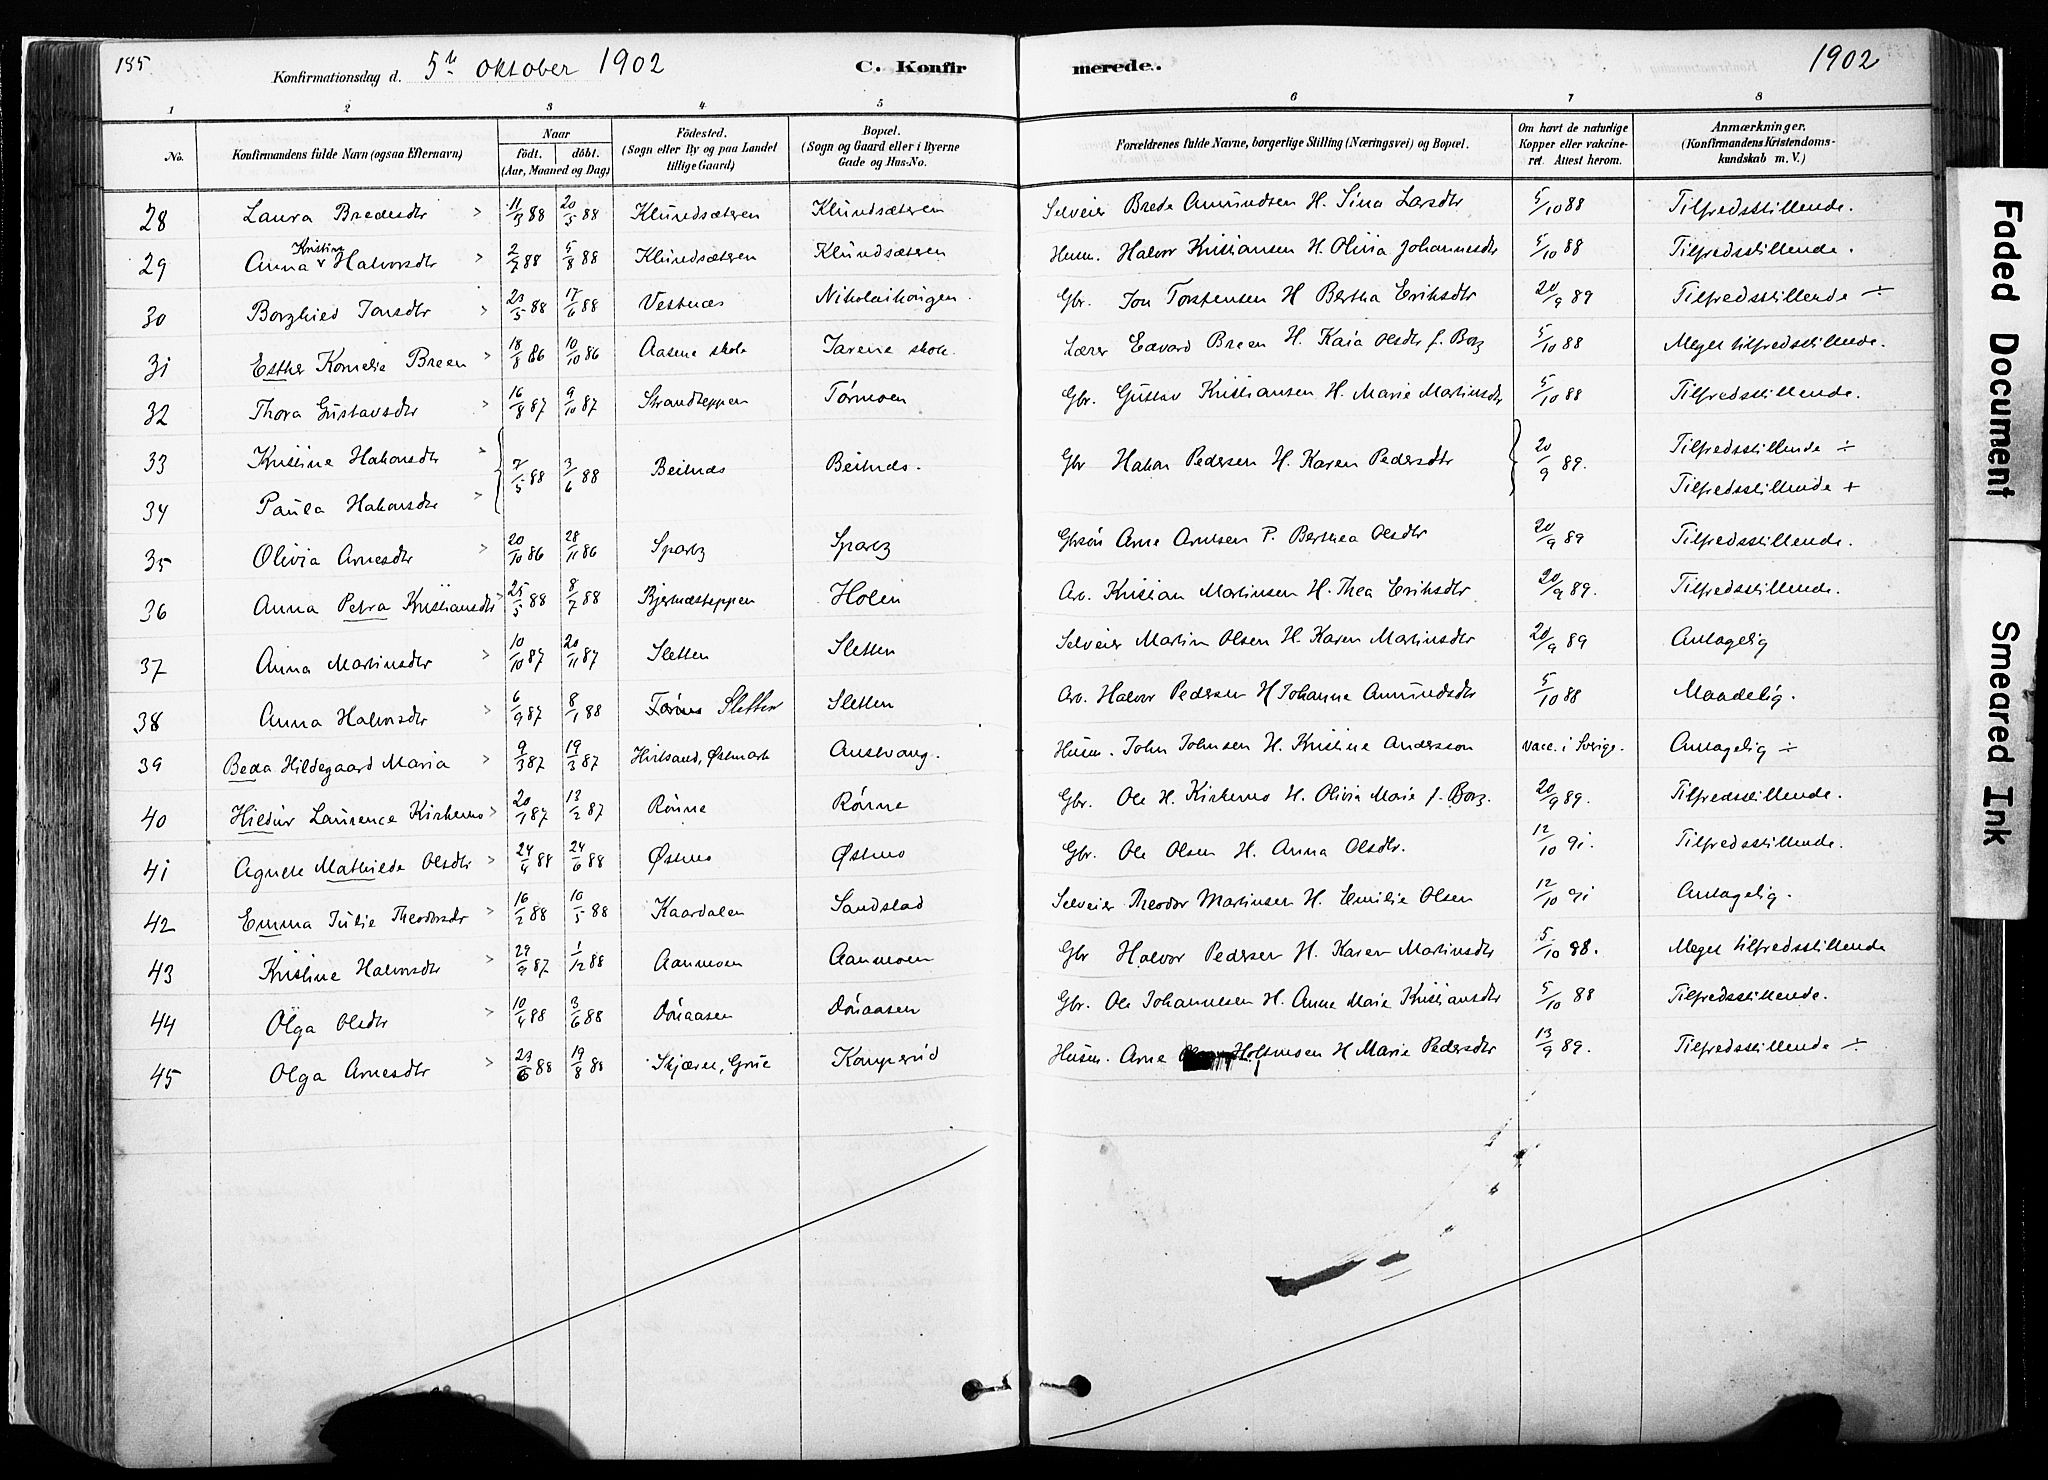 185 Konfirmationsdag d. 5te Oktober 1902 C. Konfirmerede. 1902
1 2 3 4 5 6 7 8
No. Konfirmandens fulde Navn (ogsaa Efternavn) Naar födt. döbt. (Aar, Maaned og Dag) Födested. (Sogn eller By og paa Landet tillige Gaard) Bopæl. (Sogn og Gaard eller i Byerne Gade og Hus-No. Forældrenes fulde Navne, borgerlige Stilling (Næringsvei) og Bopæl. Om havt de naturlige Kopper eller vakcineret. Attest herom. Anmærkninger. (Konfirmandens Kristendomskundskab m. V.)
28 Laura Bredesdtr 11/3 88 20/5 88 Klundsæteren Klundsæteren Selveier Brede Amundsen H. Sina Larsdtr 5/10 88 Tilfredsstillende.
29 Anna Kristine Halvorsdtr 2/7 88 5/8 88 Klundsæteren Klundsæteren Husm. Halvor Kristiansen H. Olivia Johannesdtr 5/10 88 Tilfredsstillende.
30 Borghild Jonsdtr 20/5 88 17/6 88 Vestnes Nikolaihaugen. Gbr. Jon Torstensen H Bertha Eriksdtr 20/9 89 Tilfredsstillende ÷
31 Esther Kornelie Breen 18/8 86 10/10 86 Aasene skole Jarene skole. Lærer Edvard Breen H. Kaia Olsdtr f. Borg 5/10 88 Meget tilfredsstillende.
32 Thora Gustavsdtr 16/8 87 9/10 87 Strandteppen Tørmoen Gbr. Gustav Kristiansen H. Marie Martinsdtr 5/10 88 Tilfredsstillende.
33 Kristine Hakonsdtr 7/5 88 3/6 88 Beitnes Beitnes. Gbr Hakon Pedersen H. Karen Pedersdtr 20/9 89. Tilfredsstillende ÷
34 Paula Hakonsdtr Tilfredsstillende +
35 Olivia Arnesdtr 20/10 86 28/11 86 Sparby Sparby Gbrsøn Arne Arnesen P. Berthea Olsdtr 20/9 89 Tilfredsstillende.
36 Anna Petra Kristiansdtr 25/5 88 8/7 88 Bjernesteppen Holen Arb. Kristian Martinsen H. Thea Eriksdtr 20/9 89. Tilfredsstillende.
37 Anna Martinsdtr 10/10 87 20/11 87 Sletten Sletten Selveier Martin Olsen H. Karen Martinsdtr 20/9 89 Antagelig
38 Anna Halvorsdtr 6/9 87 8/1 88 Sletten Sletten Arb. Halvor Pedersen H Johanne Amundsdtr 5/10 88 Maadelig.
39 Beda Hildegaard Maria 9/3 87 19/3 87 Hvitsand, Østmark Austvang. Husm. John Johnsen H. Kristine Andersson Vacc. i Sverige. Antagelig ÷
40 Hildur Laurence Kirkemo 20/1 87 13/2 87 Rønne Rønne Gbr. Ole H. Kirkemo H. Olivia Marie f. Borg. 20/9 89. Tilfredsstillende.
41 Agnete Mathilde Olsdtr 24/4 88 24/6 88 Østmo Østmo Gbr. Ole Olsen H. Anna Olsdtr. 12/10 91. Tilfredsstillende.
42 Emma Julie Theodorsdr 16/2 88 10/5 88 Kaardalen Sandstad Selveier Theodor Martinsen H. Emilie Olsen 12/10 91 Antagelig.
43 Kristine Halvorsdtr 29/9 87 1/12 88 Aanmoen Aanmoen Gbr Halvor Pedersen H. Karen Martinsdtr 5/10 88. Meget tilfredsstillende
44 Olga Olsdtr 10/4 88 3/6 88 Døraasen Døraasen Gbr. Ole Johannesen H. Anne Marie Kristiansdtr 5/10 88 Tilfredsstillende.
45 Olga Arnesdtr 23/6 88 19/8 88 Skjæret, Grue Kamperud Husm. Arne Holtmoen H Marie Pedersdtr 13/9 89. Tilfredsstillende ÷
Faded Document
Smeared Ink